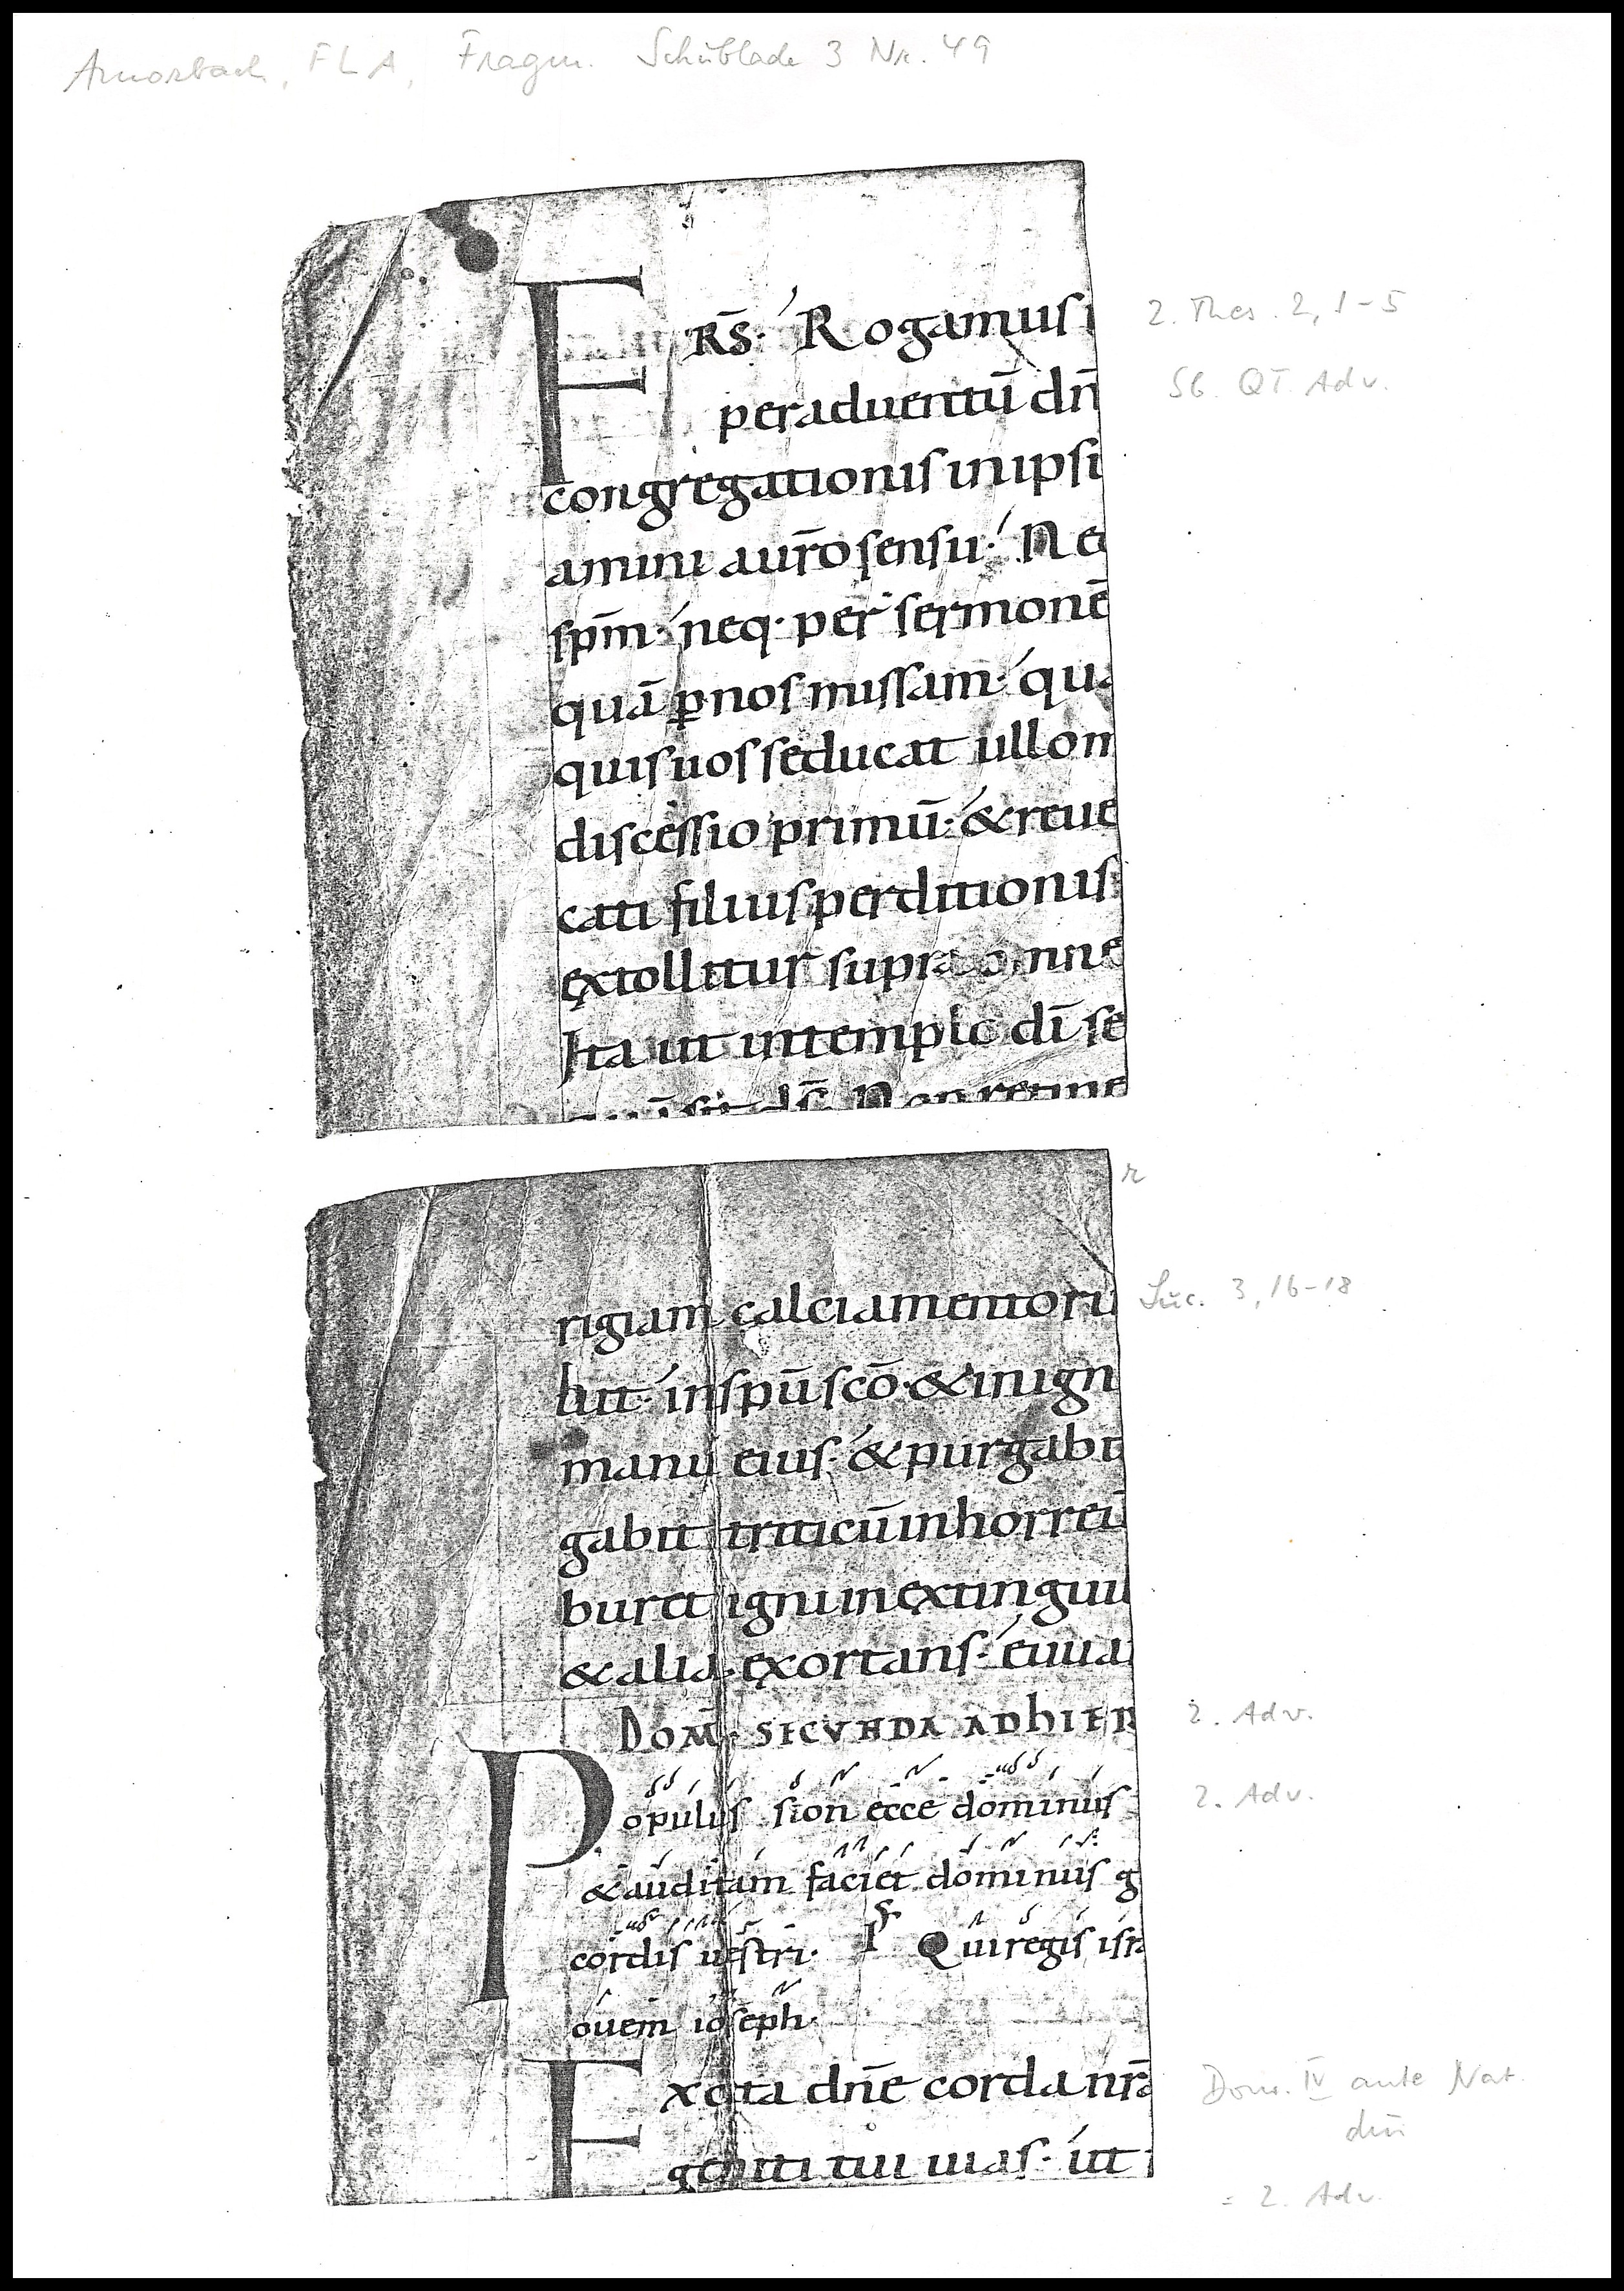 Amorbach, FLA, Fragm. Schublade 3 Nr. 49
F RS̄· Rogamus
2. Thes. 2, 1-5
peraduentū dn̄
Sb. QT. Adv.
congregationis inipsi
amini aur̄o sensu· Nec
sp̄m· neq· per sermonē
quā ꝑnos missam· qua
quis uos seducat ullo m
discessio primū· & reue
cati filius perditionis
extollitur supra omne
Ita ut intemplo dī se
sit ds̄ Non retine
r
rigiam calciamentoru
Luc. 3, 16-18
bit· inspū scō· & inign
manu eius· & purgabit
gabit triticū inhorreū
buret igni inextingui
& alia exortans· euua
Dom̄· SECVNDA ADhIER
2. Adv.
Populus sion ecce dominus
2. Adv.
& auditam faciet dominus g
cordis uestri· Ps Qui regis isra
ouem ioseph·
Excita dn̄e corda nr̄a
Dom. IV ante Nat.
dni
geniti tui uias· ut
= 2. Adv.